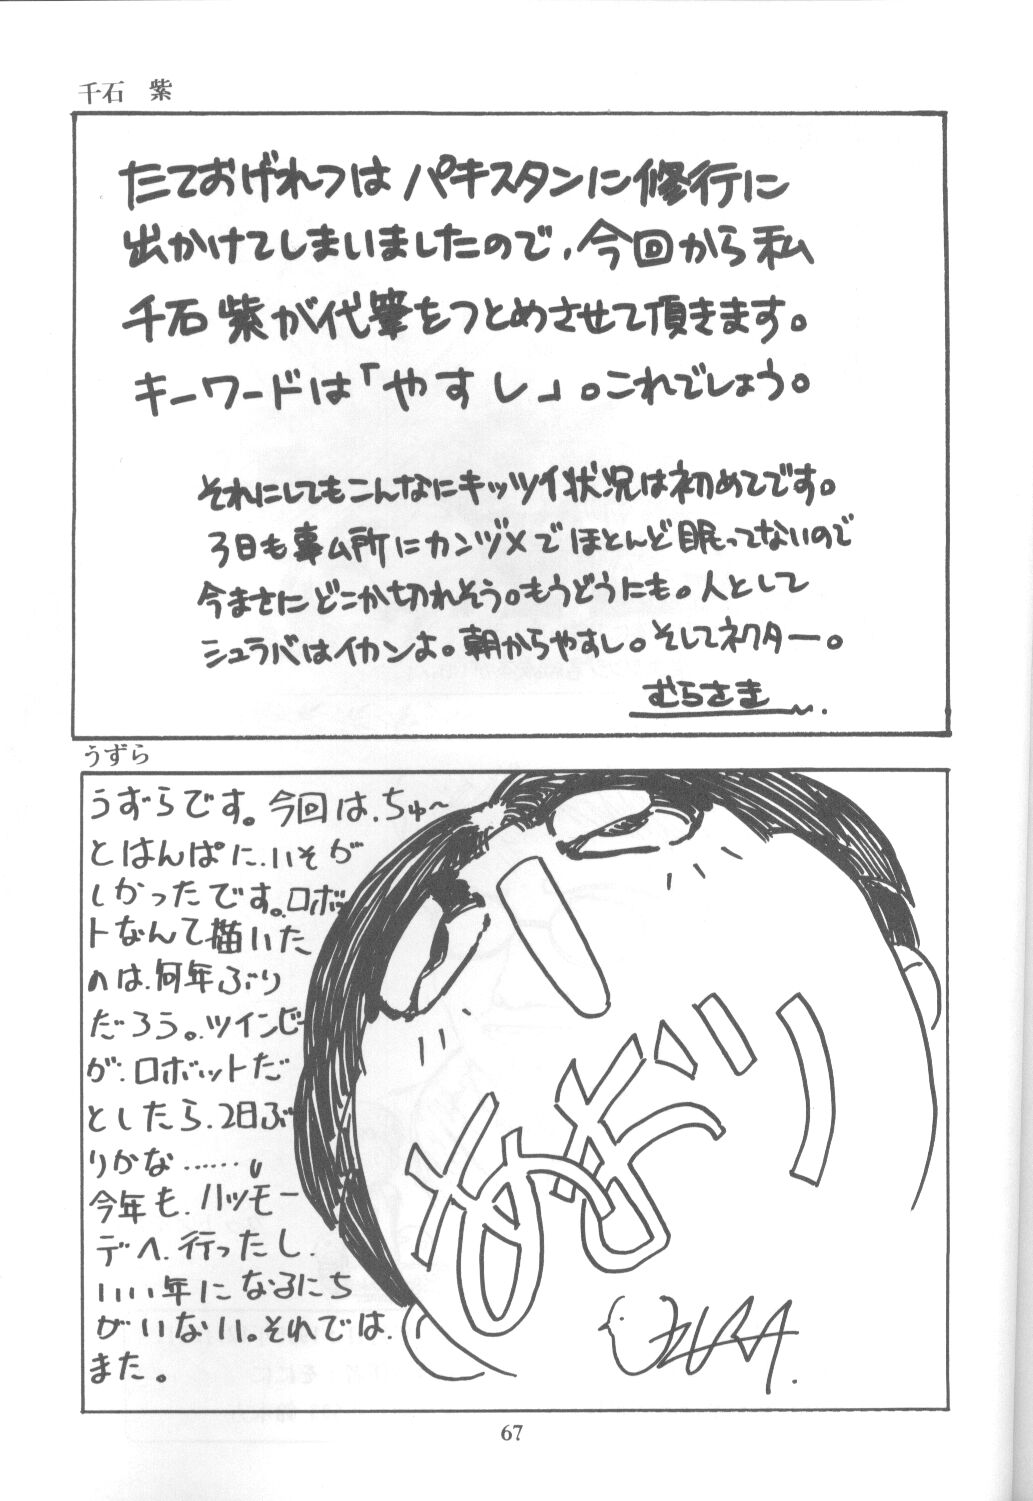 千石 紫
たておげれつは パキスタンに修行に
出かけてしまいましたので、今回から私
千石紫が代筆をつとめさせて頂きます。
キーワードは「やすし」。これでしょう。
それにしてもこんなにキッツイ状況は初めてです。
3日も事ム所にカンヅメでほとんど眠ってないので
今まさにどこか切れそう。もうどうにも。人として
シュラバはイカンよ。朝からやすし。そしてネクター。
むらさき
うずら
うずらです。今回は、ちゅ〜
とはんぱに、いそが
しかったです。ロボッ
トなんて描いた
のは、何年ぶり
だろう。ツインビー
が、ロボットだ
としたら、2日ぶ
りかな……。
今年も、ハッモー
デへ、行ったし、
いい年になるにち
がいない。それでは、
また。
UZURA.
67